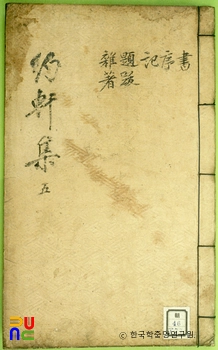 書
序
記
題跋
雜著
約軒集 五
© 한국학중앙연구원